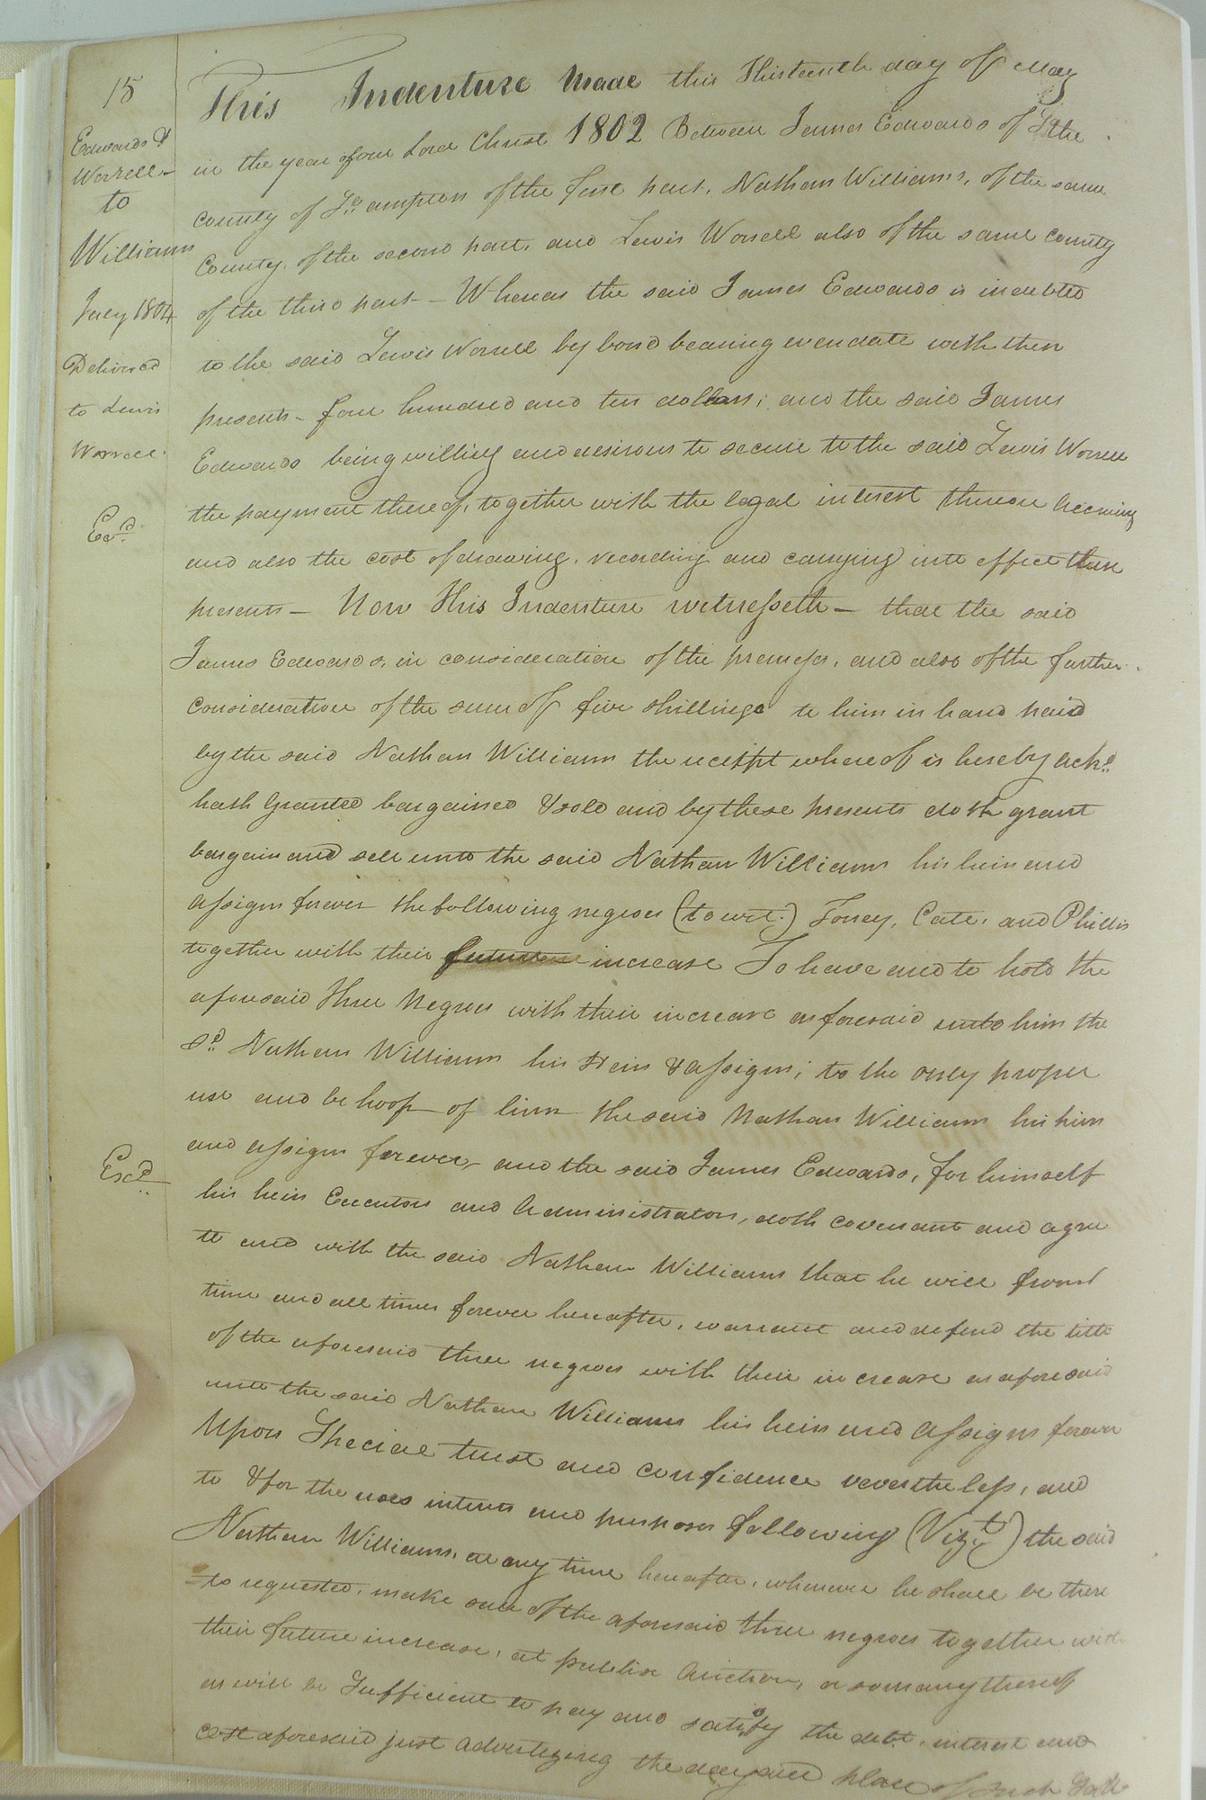 15
Edwards &
Worrell
to
Williams
July 1804
Delivered
to Lewis
Worrell
Ex.d
Exd
This Indenture Made this Thirteenth day of May
in the year of our Lord Christ 1802 Between James Edwards of the
County of So.ampton of the first part, Nathan Williams, of the same
County, of the second part, and Lewis Worrell also of the same county
of the third part - Whereas the said James Edwards is indebted
to the said Lewis Worrell by bond bearing even date with these
presents - four hundred and ten dollars; and the said James
Edwards being willing and desirous to secure to the said Lewis Worrell
the payment thereof, together with the legal interest thereon Accruing
and also the cost of drawing, recording and carrying into effect these
presents - Now This Indenture witnesseth - that the said
James Edwards, in consideration of the premises, and also of the further
consideration of the sum of five shillings to him in hand paid
by the said Nathan Williams the receipt whereof is hereby ackd.
hath Granted bargained & sold and by these presents doth grant
bargain and sell unto the said Nathan Williams his heirs and
assigns forever the following negroes (to wit.) Toney, Cate, and Phillis
together with their future increase To have and to hold the
aforesaid three Negroes with their increase as foresaid unto him the
sd. Nathan Williams his Heirs & assigns; to the only proper
use and behoof of him the said Nathan Williams his heirs
and assigns forever, and the said James Edwards, for himself
his heirs Executors and Administrators, doth covenant and agree
to and with the said Nathan Williams that he will from
time and all times forever hereafter, warrant and defend the title
of the aforesaid three negroes with their increase as aforesaid
unto the said Nathan Williams his heirs and assigns forever
Upon Special trust and confidence nevertheless, and
to & for the uses intents and purposes following (Vizt.) the said
Nathan Williams, at any time hereafter, whenever he shall be there
to requested, make sale of the aforesaid three negroes together with
their future increase, at publick Auction, or so many thereof
as will be Sufficient to pay and satisfy the debt, interest and
cost aforesaid just advertizing the day and place of such Sale